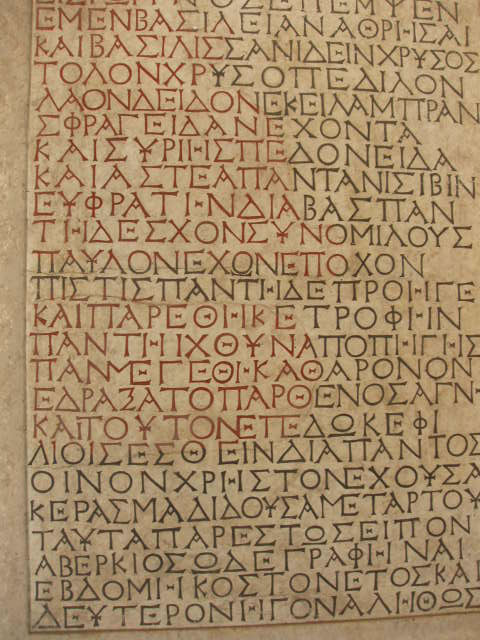 ΕΙΣΡΩΜΗΝΟΣΕΠΕΜΨΕΝ
ΕΜΕΝΒΑΣΙΛΕΙΑΝΑΘΡΗΣΑΙ
ΚΑΙΒΑΣΙΛΙΣΣΑΝΙΔΕΙΝΧΡΥΣΟΣ
ΤΟΛΟΝΧΡΥΣΟΠΕΔΙΛΟΝ
ΛΑΟΝΔΕΙΔΟΝΕΚΕΙΛΑΜΠΡΑΝ
ΣΦΡΑΓΕΙΔΑΝΕΧΟΝΤΑ
ΚΑΙΣΥΡΙΗΣΠΕΔΟΝΕΙΔΑ
ΚΑΙΑΣΤΕΑΠΑΝΤΑΝΙΣΙΒΙΝ
ΕΥΦΡΑΤΗΝΔΙΑΒΑΣΠΑΝ
ΤΗΔΕΣΧΟΝΣΥΝΟΜΙΛΟΥΣ
ΠΑΥΛΟΝΕΧΩΝΕΠΟΧΟΝ
ΠΙΣΤΙΣΠΑΝΤΗΔΕΠΡΟΗΓΕ
ΚΑΙΠΑΡΕΘΗΚΕΤΡΟΦΗΝ
ΠΑΝΤΗΙΧΘΥΝΑΠΟΠΗΓΗΣ
ΠΑΝΜΕΓΕΘΗΚΑΘΑΡΟΝΟΝ
ΕΔΡΑΞΑΤΟΠΑΡΘΕΝΟΣΑΓΝΗ
ΚΑΙΤΟΥΤΟΝΕΠΕΔΩΚΕΦΙ
ΛΙΟΙΣΕΣΘΕΙΝΔΙΑΠΑΝΤΟΣ
ΟΙΝΟΝΧΡΗΣΤΟΝΕΧΟΥΣΑ
ΚΕΡΑΣΜΑΔΙΔΟΥΣΑΜΕΤΑΡΤΟΥ
ΤΑΥΤΑΠΑΡΕΣΤΩΣΕΙΠΟΝ
ΑΒΕΡΚΙΟΣΩΔΕΓΡΑΦΗΝΑΙ
ΕΒΔΟΜΗΚΟΣΤΟΝΕΤΟΣΚΑΙ
ΔΕΥΤΕΡΟΝΗΓΟΝΑΛΗΘΩΣ